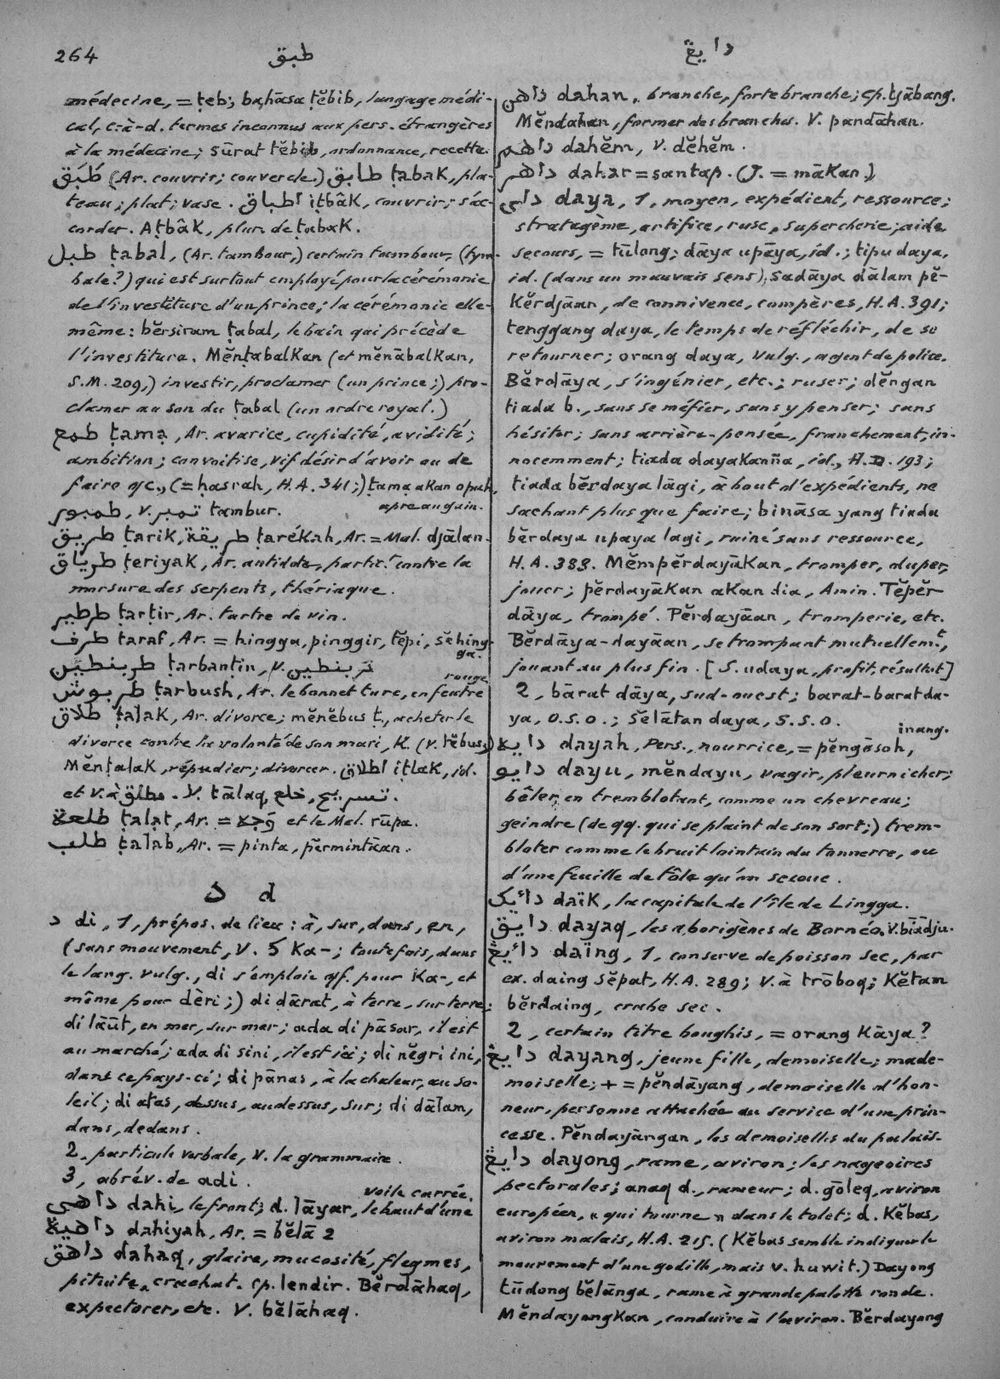 264
طبق
دايڠ
médecine, = ṭeb; bahāsa ṭĕbib, langage médi-
cal, c.-à-d. termes inconnus aux pers. étrangères
à la médecine; sūrat ṭĕbib, ordonnance, recette.
طبق (Ar. couvrir; couvercle.) طابق ṭabaK, pla-
teau; plat; vase. اطباق iṭbâK, couvrir; s'ac-
corder. AṭbâK, plur. de ṭabaK.
طبل ṭabal, (Ar. tambour,) certain tambour, (tym-
bale?) qui est surtout employé pour la cérémonie
de l'investiture d'un prince; la cérémonie elle-
même: bĕrsiram ṭabal, le bain qui précède
l'investiture. MĕnṭabalKan (et mĕnābalKan,
S.M. 209,) investir, proclamer (un prince;) pro-
clamer au son du ṭabal (un ordre royal.)
طمع ṭama, Ar. avarice, cupidité, avidité;
ambition; convoitise, vif désir d'avoir ou de
faire qc., (= ḥasrah, H.A. 341;) ṭama aKan opuh,
apre au gain.
طمبور, v. تمبر tambur.
طريق ṭarik, طريقة ṭarékah, Ar. = Mal. djālan.
طرياق ṭeriyaK, Ar. antidote, partic.t contre la
morsure des serpents, thériaque.
طرطير ṭarṭir, Ar. tartre de vin.
طرف ṭaraf, Ar. = hingga, pinggir, tĕpi, sĕhing-
ga.
طربنطين ṭarbanṭin, v. تربنطين
rouge
طربوش ṭarbush, Ar. le bonnet turc, en feutre
طلاق ṭalaK, Ar. divorce; mĕnĕbus ṭ., acheter le
divorce contre la volonté de son mari, K. (v. tĕbus;)
MĕnṭalaK, répudier; divorcer. اطلاق iṭlaK, id.
et v. à مطلق. V. ṭālaq, خلع, تسريح.
طلعة ṭalaṭ, Ar. = وجه et le Mal. rūpa.
طلب ṭalab, Ar. = pinta, pĕrmintāan.
د d
د di, 1, prépos. de lieu: à, sur, dans, en,
(sans mouvement, V. 5 Ka-; toutefois, dans
le lang. vulg., di s'emploie qf. pour Ka-, et
même pour dèri;) di dārat, à terre, sur terre;
di lāūt, en mer, sur mer; ada di pāsar, il est
au marché; ada di sini, il est ici; di nĕgri ini,
dans ce pays-ci; di pānas, à la chaleur, au so-
leil; di atas, dessus, au dessus, sur; di dālam,
dans, dedans.
2, particule verbale, V. la grammaire.
3, abrév. de adi.
voile carrée.
داهي dahi, le front; d. lāyar, le haut d'une
داهية dahiyah, Ar. = bĕlā 2
داهق dahaq, glaire, mucosité, flegmes,
pituite, crachat. cp. lendir. Bĕrdāhaq,
expectorer, etc. V. bĕlāhaq.
داهن dahan, branche, forte branche; cp. tjābang.
Mĕndahan, former des branches. V. pandāhan.
داهم dahĕm, V. dĕhĕm.
داهر dahar = santap. (J. = māKan.)
داي daya, 1, moyen, expédient, ressource;
stratagème, artifice, ruse, supercherie; aide
secours, = tūlong; dāya upāya, id.; tipu daya,
id. (dans un mauvais sens); sadāya dālam pĕ-
Kĕrdjāan, de connivence, compères, H.A. 391;
tenggang daya, le temps de réfléchir, de se
retourner; orang daya, vulg., agent de police.
Bĕrdāya, s'ingénier, etc.; ruser; dĕngan
tiada b., sans se méfier, sans y penser; sans
hésiter; sans arrière-pensée, franchement, in-
nocemment; tiada dayaKanña, id., H.D. 193;
tiada bĕrdaya lāgi, à bout d'expédients, ne
sachant plus que faire; bināsa yang tiada
bĕrdaya upaya lagi, ruiné sans ressource,
H.A. 388. MĕmpĕrdayāKan, tromper, duper,
jouer; pĕrdayāKan aKan dia, Amin. Tĕpĕr-
dāya, trompé. Pĕrdayāan, tromperie, etc.
Bĕrdāya-dayāan, se trompant mutuellem.t,
jouant au plus fin. [S. udaya, profit, résultat]
2, bārat dāya, sud-ouest; barat-barat da-
ya, O.S.O.; Sĕlātan daya, S.S.O.
inang.
دايه dayah, Pers., nourrice, = pĕngāsoh,
دايو dayu, mĕndayu, vagir, pleurnicher;
bêler, en tremblotant, comme un chevreau;
geindre (de qq. qui se plaint de son sort;) trem-
bloter comme le bruit lointain du tonnerre, ou
d'une feuille de tôle qu'on secoue.
دائيك daïK, la capitale de l'île de Lingga.
دايق dayaq, les aborigènes de Bornéo, V. biādju.
دائيڠ daïng, 1, conserve de poisson sec, par
ex. daing sĕpat, H.A. 289; V. à trōboq; Kĕtam
bĕrdaing, crabe sec.
2, certain titre boughis, = orang Kāya?
دايڠ dayang, jeune fille, demoiselle; made-
moiselle; + = pĕndāyang, demoiselle d'hon-
neur, personne attachée au service d'une prin-
cesse. Pĕndayāngan, les demoiselles du palais.
دايڠ dayong, rame, aviron; les nageoires
pectorales; anaq d., rameur; d. gōleq, aviron
européen, « qui tourne » dans le tolet; d. Kĕbas,
aviron malais, H.A. 215. (Kĕbas semble indiquer le
mouvement d'une godille, mais v. huwit.) Dayong
tūdong bĕlānga, rame à grande palette ronde.
MĕndayongKan, conduire à l'aviron. Bĕrdayong